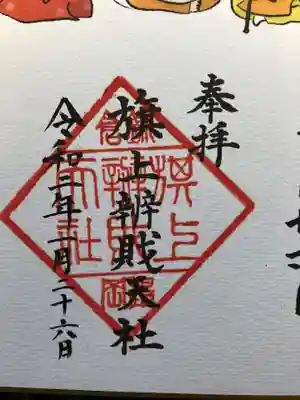 奉拝
旗上辨財天社
令和二年一月二十六日
鎌倉
旗上
辨財
天社